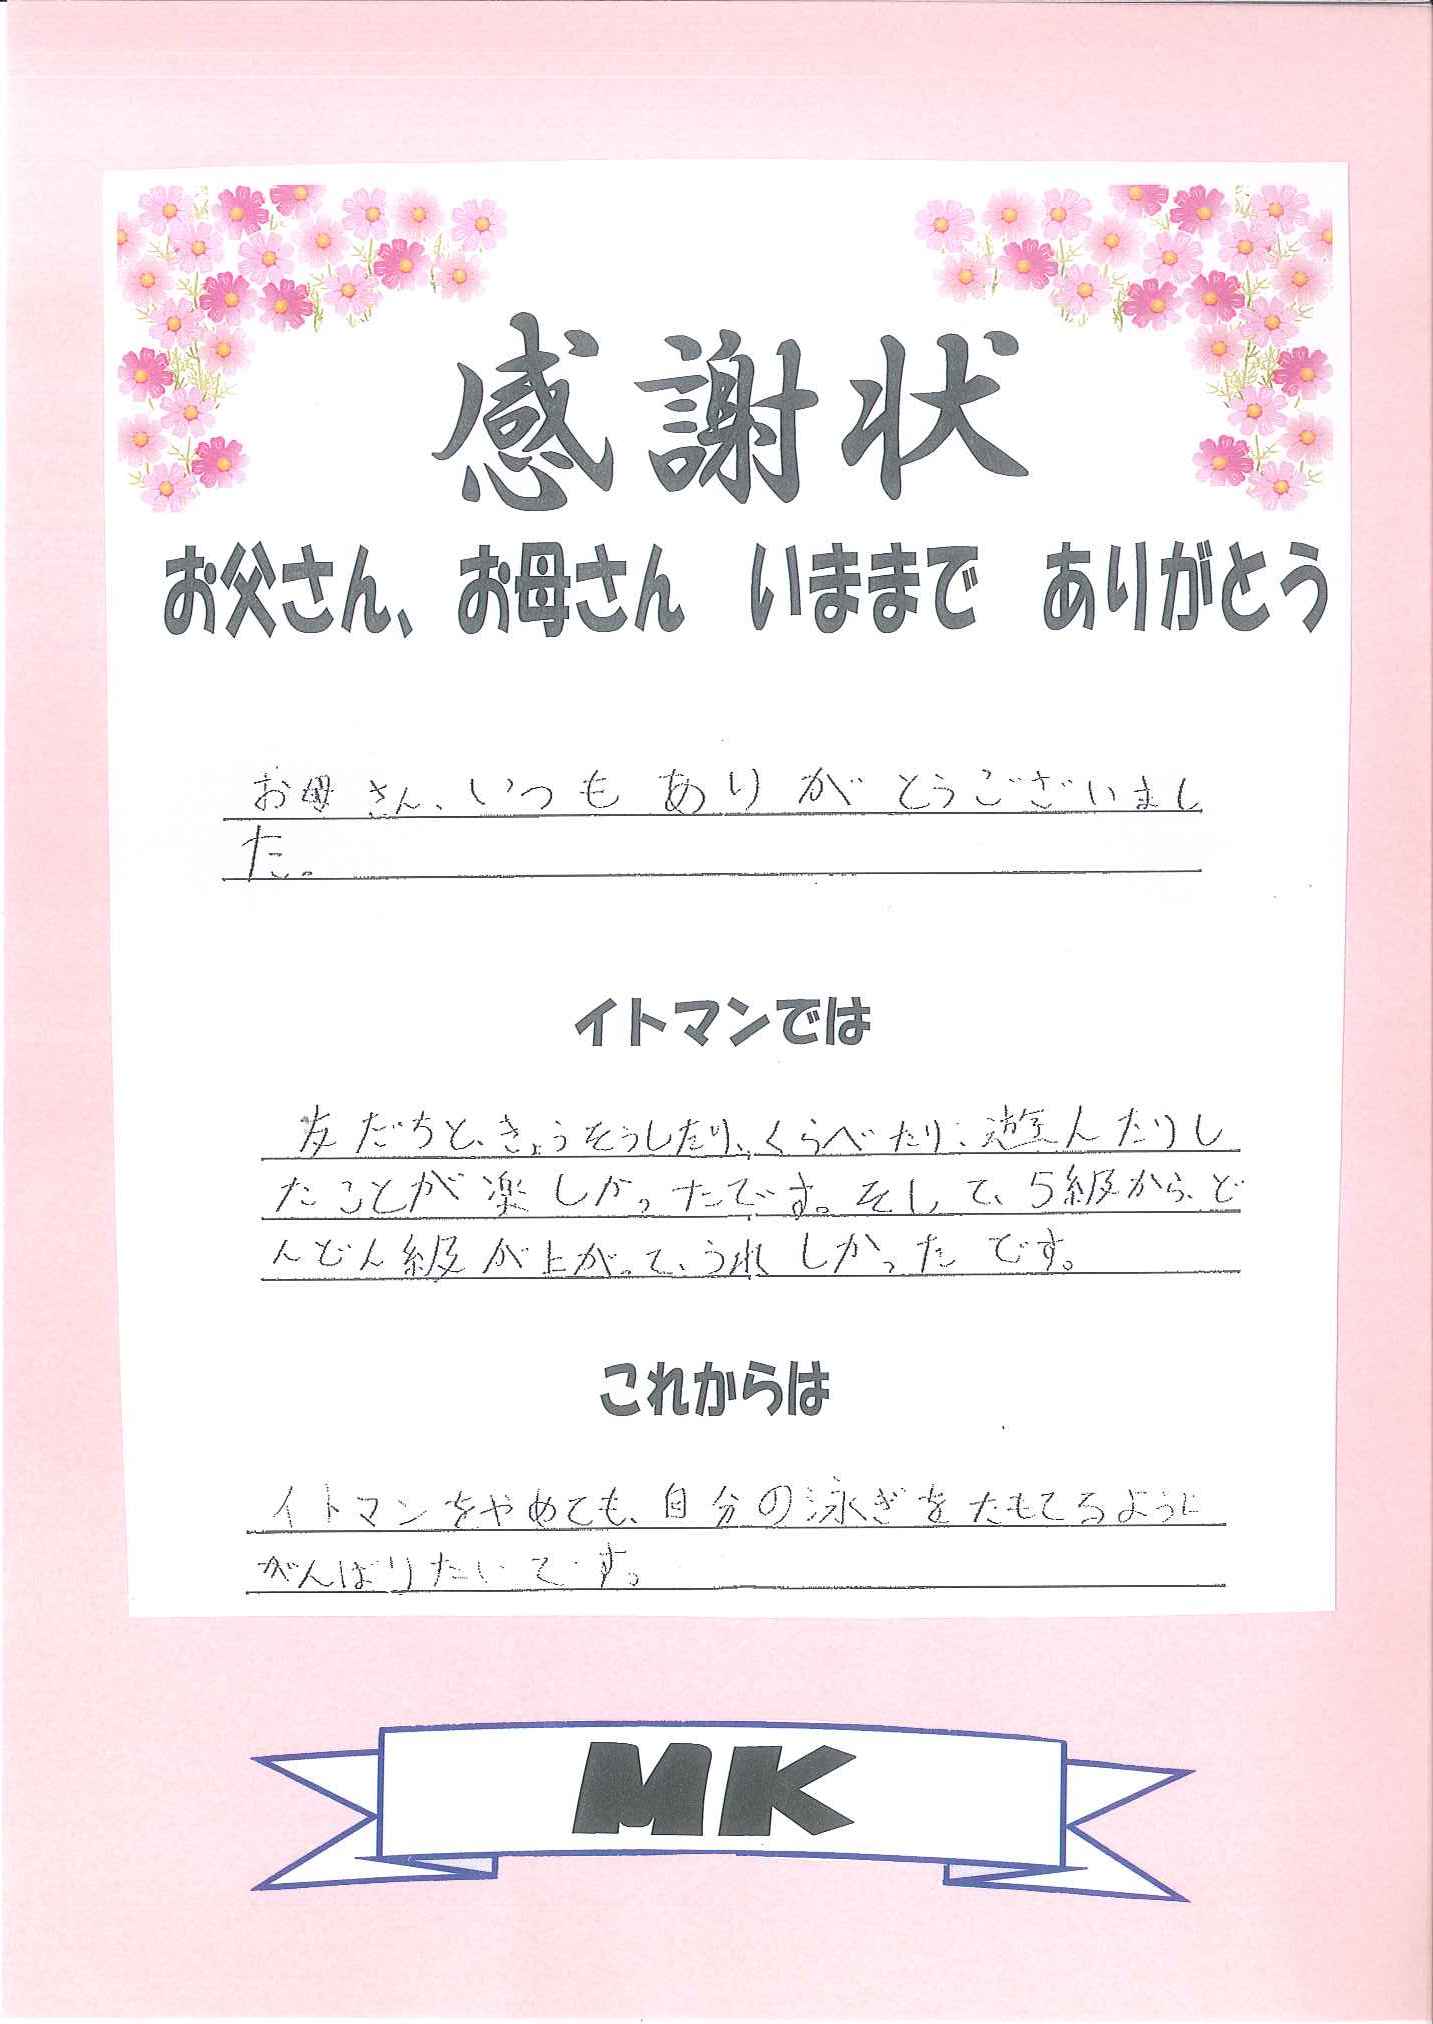 感謝状
お父さん、お母さん　いままで　ありがとう
お母さん、いつもありがとうございまし
た。
イトマンでは
友だちと、きょうそうしたり、くらべたり、遊んたりし
たことが楽しかったです。そして、5級から、ど
んどん級が上がって、うれしかったです。
これからは
イトマンをやめても、自分の泳ぎをたもてるように
がんばりたいです。
MK